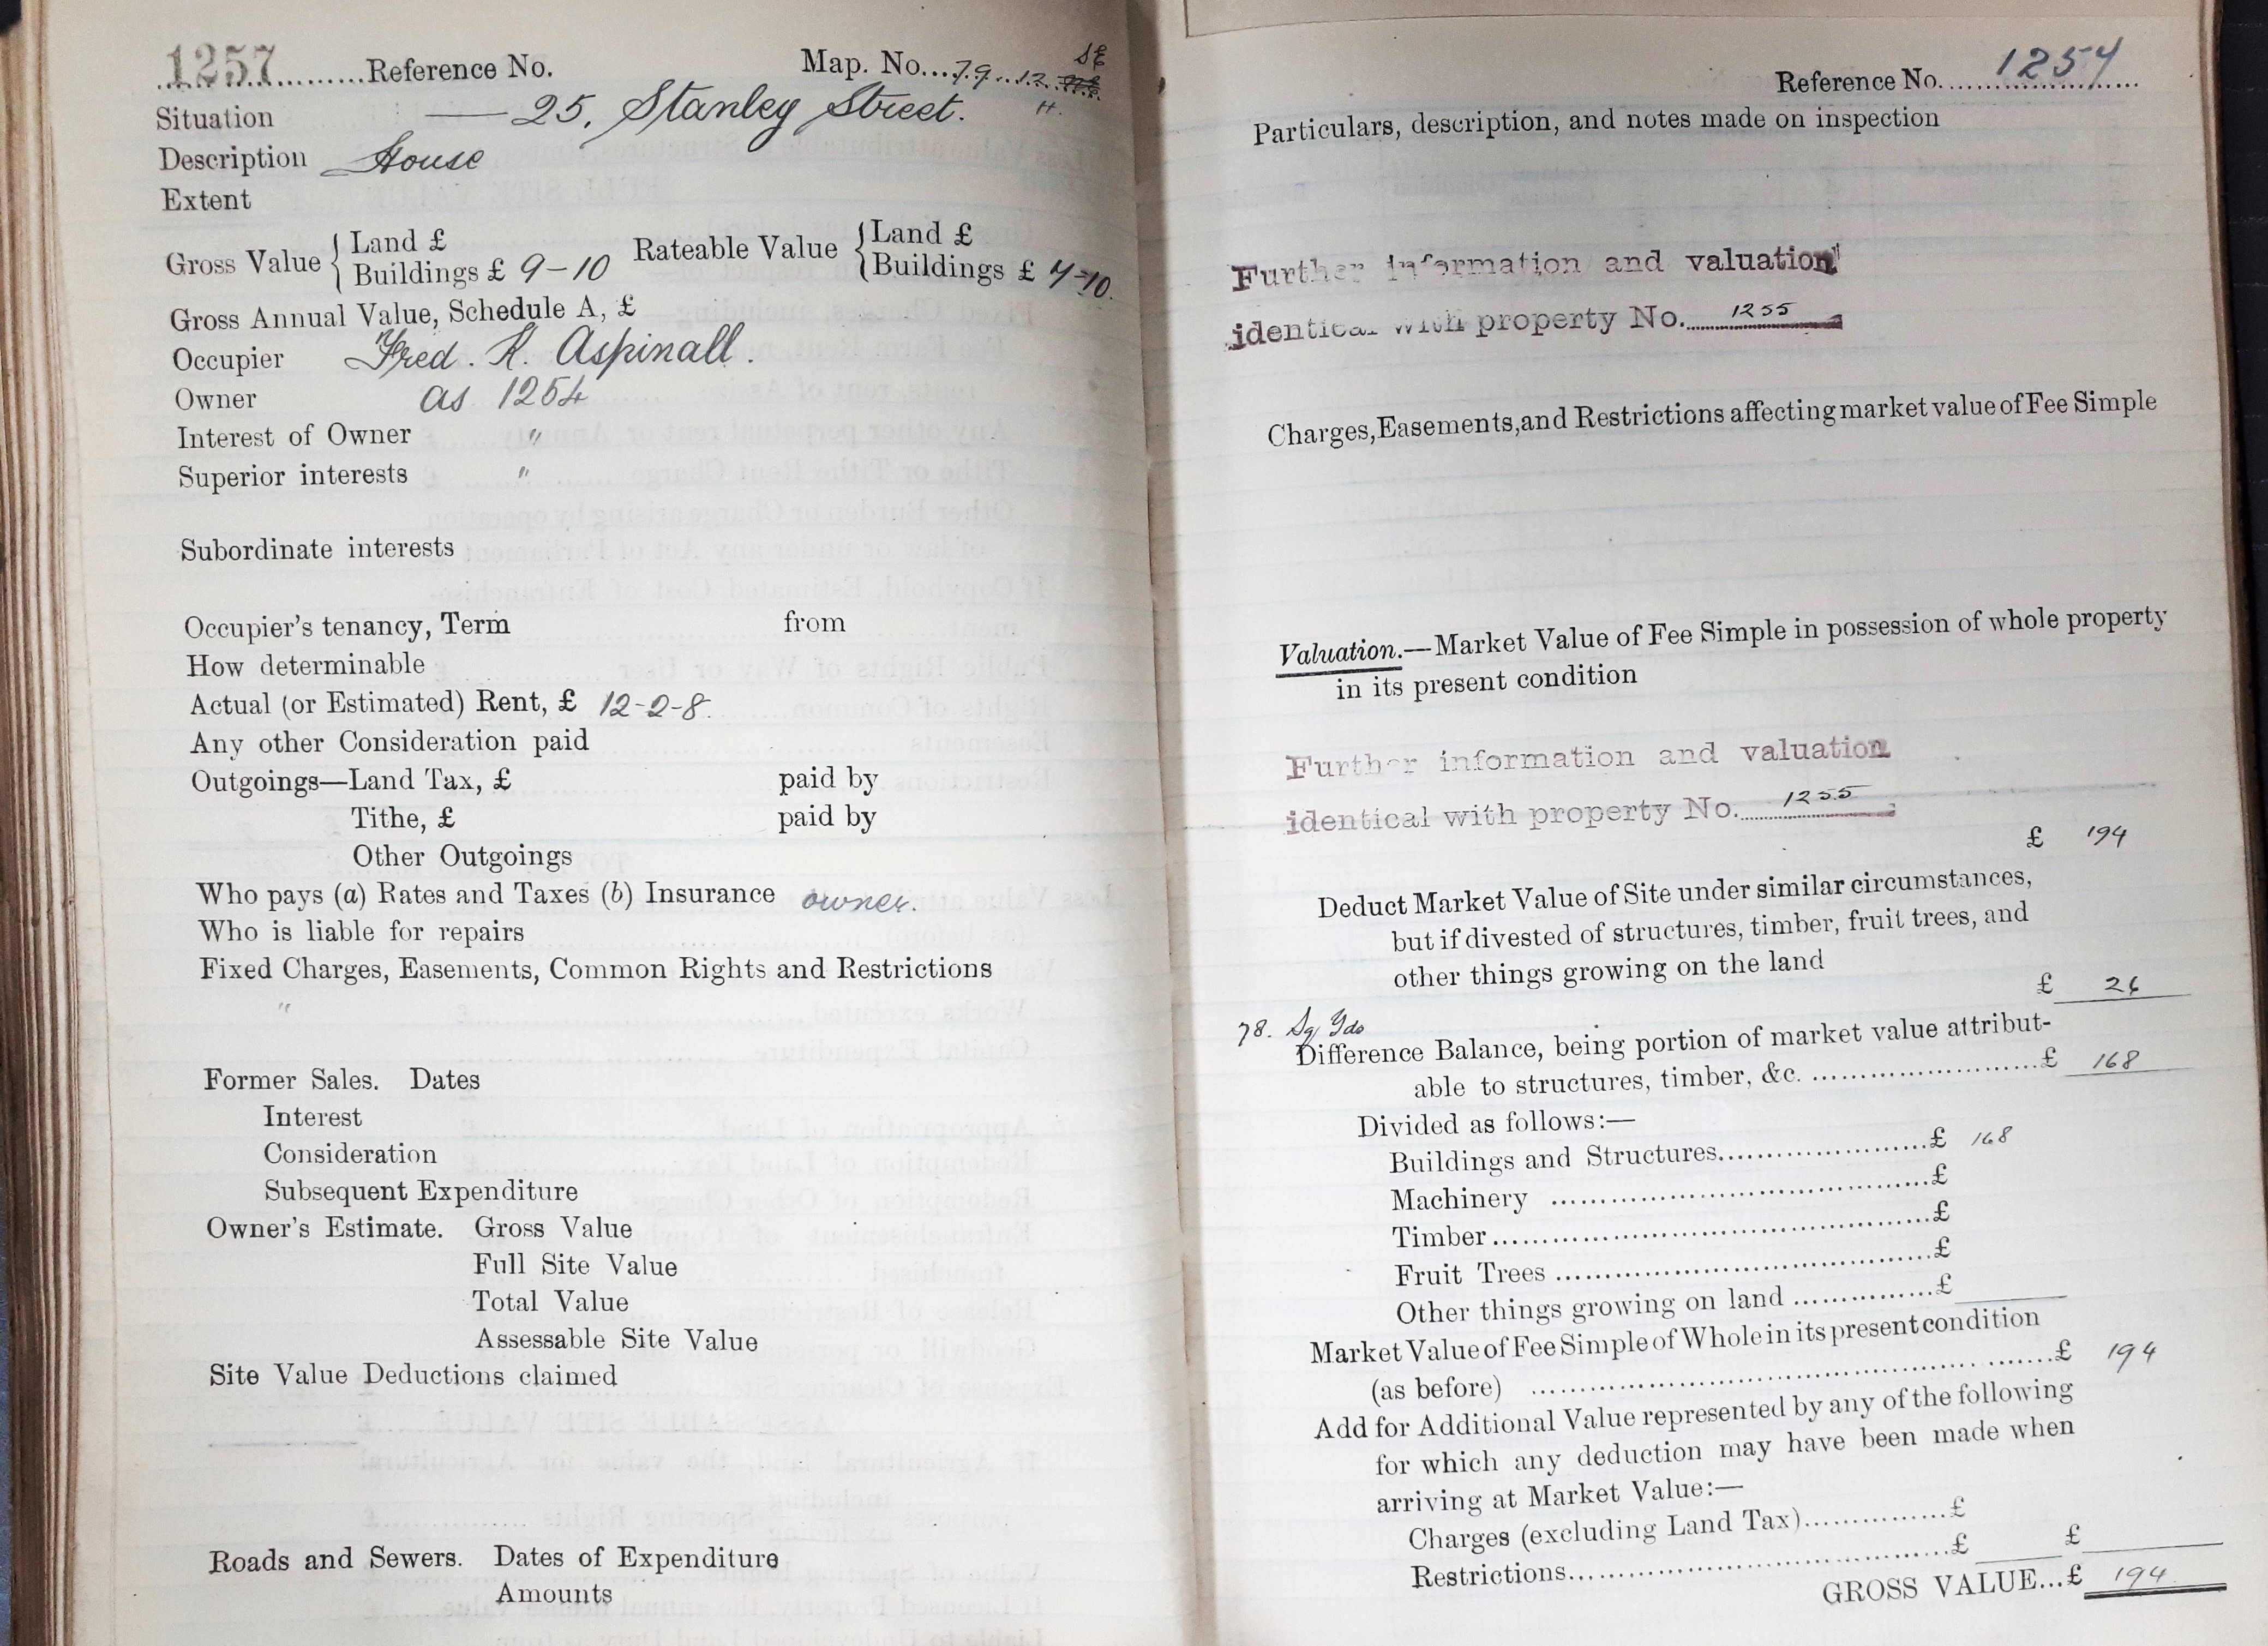 1257 Reference No. Map. No. 79. 12. SE
H.
Situation — 25, Stanley Street.
Description House
Extent
Gross Value { Land £ Rateable Value { Land £
Buildings £ 9-10 Buildings £ 7-10.
Gross Annual Value, Schedule A, £
Occupier Fred. K. Aspinall.
Owner as 1254
Interest of Owner "
Superior interests "
Subordinate interests
Occupier's tenancy, Term from
How determinable
Actual (or Estimated) Rent, £ 12-2-8.
Any other Consideration paid
Outgoings—Land Tax, £ paid by
Tithe, £ paid by
Other Outgoings
Who pays (a) Rates and Taxes (b) Insurance owner.
Who is liable for repairs
Fixed Charges, Easements, Common Rights and Restrictions
"
Former Sales. Dates
Interest
Consideration
Subsequent Expenditure
Owner's Estimate. Gross Value
Full Site Value
Total Value
Assessable Site Value
Site Value Deductions claimed
Roads and Sewers. Dates of Expenditure
Amounts
Reference No. 1257
Particulars, description, and notes made on inspection
Further information and valuation
identical with property No. 1255
Charges, Easements, and Restrictions affecting market value of Fee Simple
Valuation.—Market Value of Fee Simple in possession of whole property
in its present condition
Further information and valuation
identical with property No. 1255
£ 194
Deduct Market Value of Site under similar circumstances,
but if divested of structures, timber, fruit trees, and
other things growing on the land
£ 26
78. Sq Yds
Difference Balance, being portion of market value attribut-
able to structures, timber, &c. £ 168
Divided as follows:—
Buildings and Structures £ 168
Machinery £
Timber £
Fruit Trees £
Other things growing on land £
Market Value of Fee Simple of Whole in its present condition
(as before) £ 194
Add for Additional Value represented by any of the following
for which any deduction may have been made when
arriving at Market Value:—
Charges (excluding Land Tax) £
Restrictions £ £
GROSS VALUE...£ 194